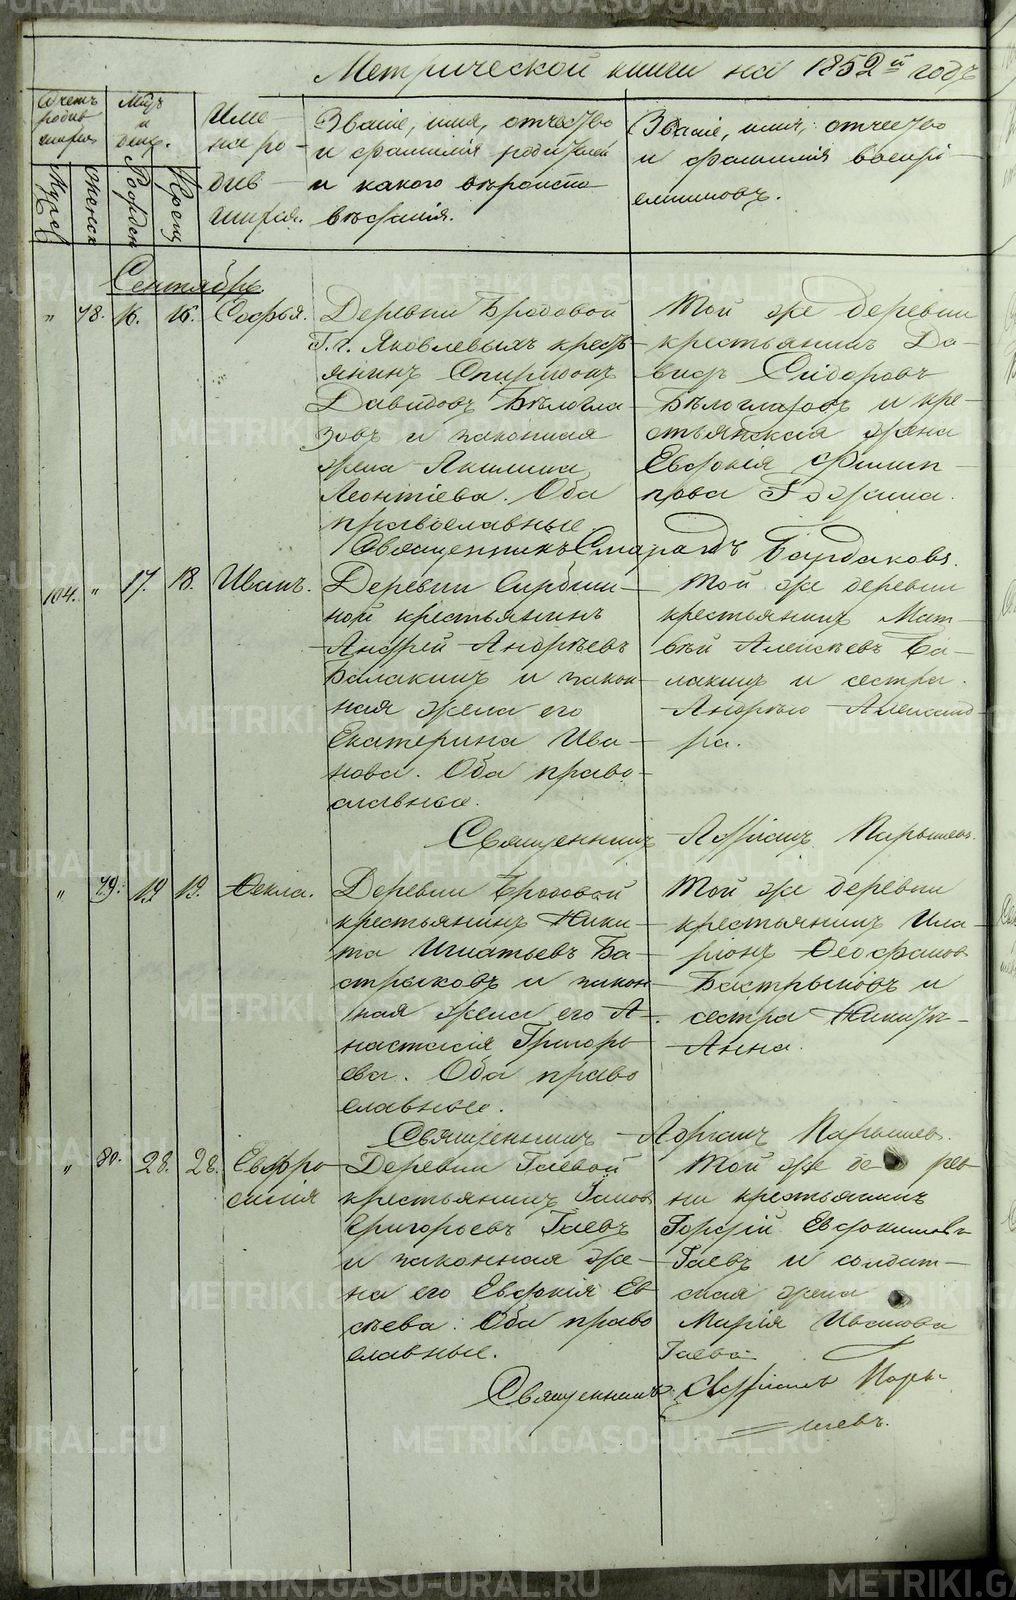 Метрической книги на 1852й годъ
Счетъ родив шихся
Мцъ и день.
Муж.
Женск
Рожден
Крещ
Име на ро - див - шихся.
Званіе, имя, отчество
и фамилія родителей
и какого вѣроиспо
вѣданія.
Званіе, имя, отчество
и фамилія воспрі -
емниковъ.
Сентябрь.
" 78. 16. 16. Софья.
Деревни Бродовой
Г.г. Яковлевыхъ кресть
янинъ Спиридонъ
Давидовъ Бѣлогла
зовъ и законная
жена Акилина
Леонтіева. Оба
православные.
Той же деревни
крестьянинъ Да-
видъ Сидоровъ
Бѣлоглазовъ и кре-
стьянская жена
Евдокія Филип -
пова
Священникъ Смарагдъ Бардаковъ.
104. " 17. 18. Иванъ.
Деревни
ной крестьянинъ
Андрей Андреевъ
Балакинъ и закон-
ная жена его
Екатерина Ива -
нова. Оба право -
славные.
Той же деревни
крестьянинъ Мат-
вѣй Алексѣевъ Ба-
лакинъ и сестра
Андрѣю Александ
ра.
Священникъ Адріанъ Парышевъ.
" 79. 19 19. Ѳекла.
Деревни Бродовой
крестьянинъ Ники-
та Игнатьевъ Ба-
стрыковъ и закон
ная жена его А-
настасія Григорь
ева. Оба право
славные.
Той же деревни
крестьянинъ Ила-
ріонъ Ѳеофановъ
Бастрыковъ и
сестра Никиты
Анна.
Священникъ Адріанъ Парышевъ.
" 80. 28. 28. Евфро
синія
Деревни Гаевой
крестьянинъ
Григорьевъ Гаевъ
и законная же-
на его Евдокія Ев
сѣева. Оба право
славные.
Той же де рев
ни крестьянинъ
Гордѣй Евдокимовъ
Гаевъ и солдат-
ская жена
Марія Иванова
Гаева
Священникъ Адріанъ Пары-
шевъ.
METRIKI.GASO-URAL.RU